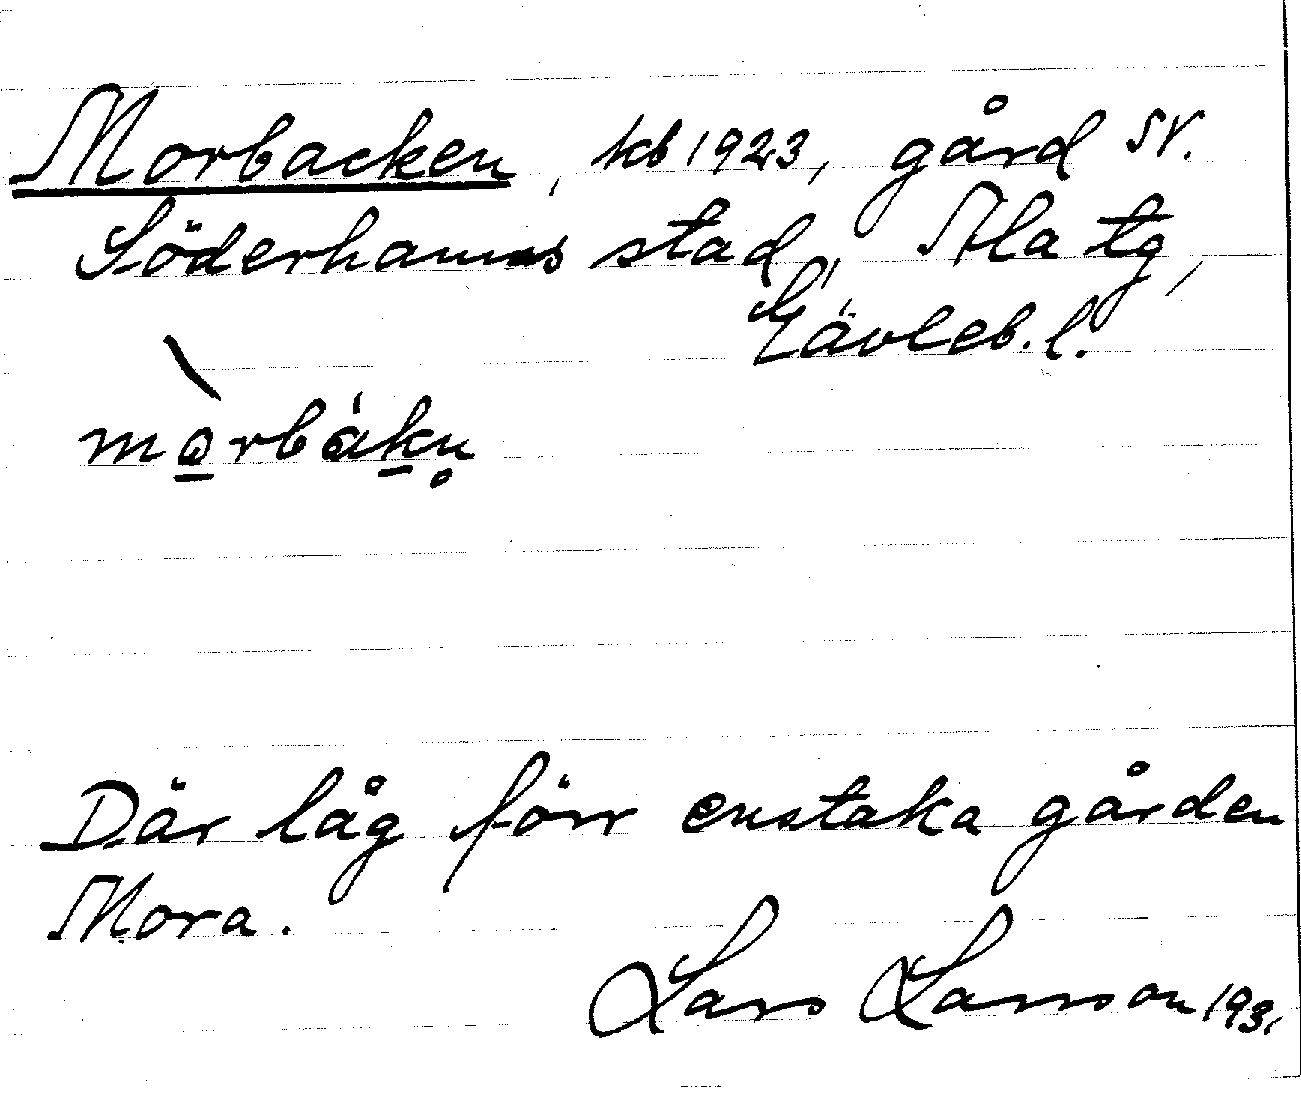 Morbacken, kb 1923, gård SV.
Söderhamns stad, Ala tg,
Gävleb. l.
mòrbákn̥
Där låg förr enstaka gården
Mora.
Lars Larsson 1931